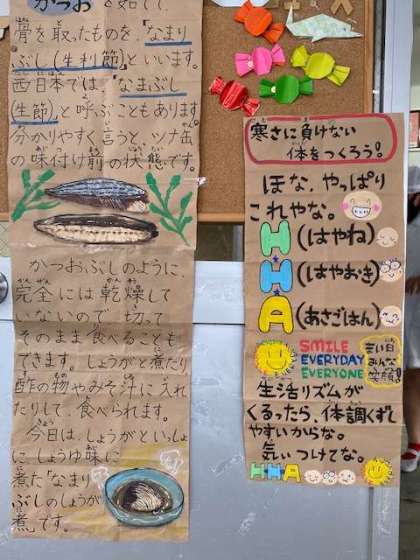 かつお
骨を取ったものを、「なまり
ぶし(生利節)」といいます。
西日本では、「なまぶし
(生節)」と呼ぶこともあります。
分かりやすく言うと、ツナ缶
の味付け前の状態です。
かつおぶしのように、
完全には乾燥して
いないので、切って
そのまま食べることも
できます。しょうがと煮たり
酢の物やみそ汁に入れ
たりして、食べられます。
今日は、しょうがといっしょ
に、しょうゆ味に
煮た「なまり
ぶしのしょうが
煮」です。
寒さに負けない
体をつくろう!
ほな、やっぱり
これやな。
H(はやね)
H(はやおき)
A(あさごはん)
SMILE
EVERYDAY
EVERYONE
みんな
笑顔
生活リズムが
くるったら、体調くずし
やすいからな。
気いつけてな。
H・H・A